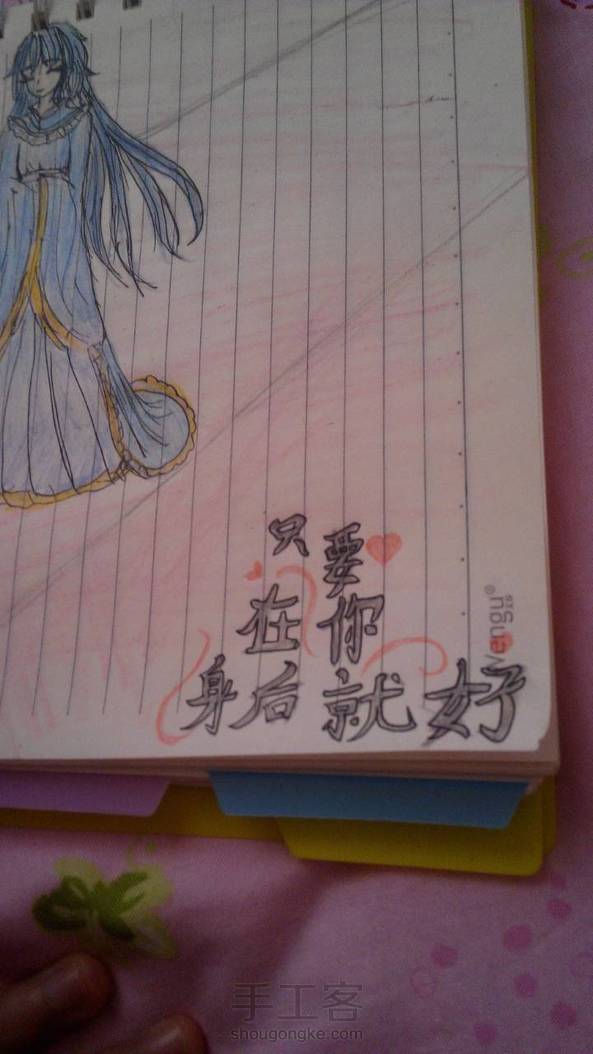 只要
在你
身后就好
手工客
shougongke.com